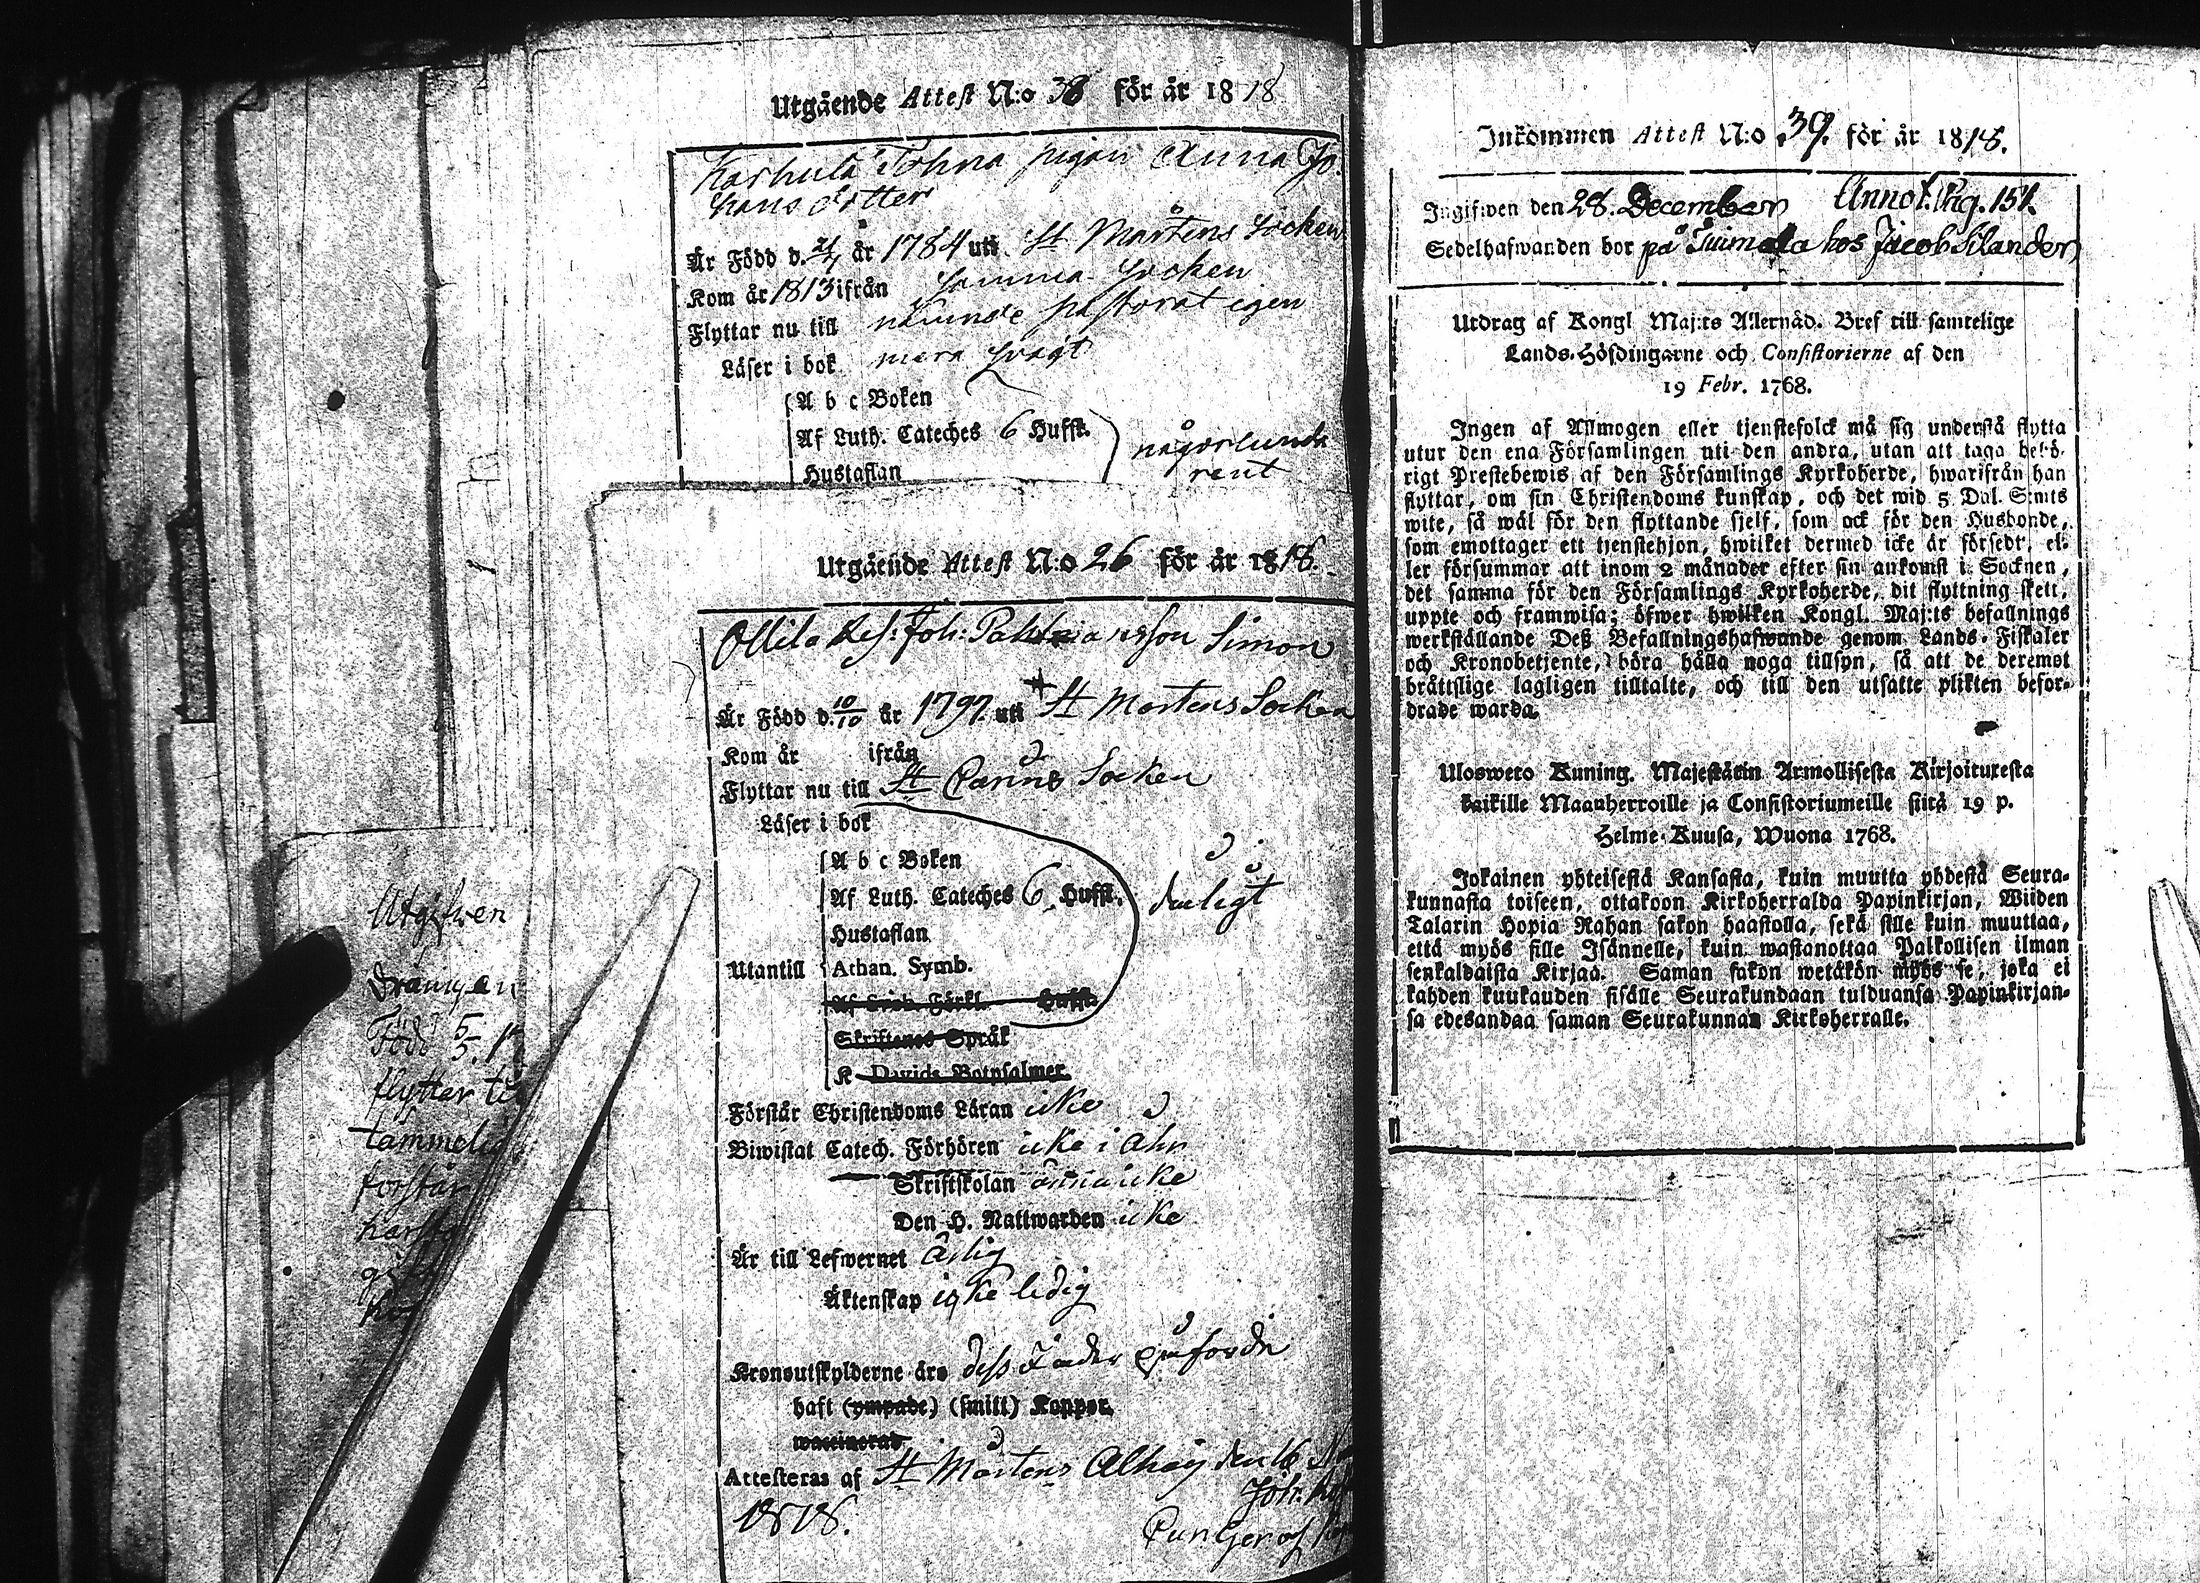 Utgående Attest N:o 38 för år 1818
Karhula Tohna pigan Anna Jo.
hans dotter
År Född d. 21/4 år 1784 uti St Mårtens Socken
Kom år 1813 ifrån samma Socken
Flyttar nu till nämnde pastorat igen
Läser i bok mera svagt
A b c Boken
Af Luth. Cateches 6 Hufst.
Hustaflan
någorlunda
rent
Utgående Attest N:o 26 för år 1818.
Ollila Simon
År Född d. 10/10 år 1797. uti St Mårtens Socken
Kom år ifrån
Flyttar nu till St Carins Socken
Läser i bok
A b c Boken
Af Luth. Cateches 6 Hufst.
dåligt
Hustaflan
Utantill Athan. Symb.
Af Förkl. Hufst.
Skriftenes Språk
K Davids Botpsalmer.
Förstår Christendoms Läran icke
Biwistat Catech. Förhören icke i åhr
Skriftskolan ännu icke
Den H. Nattwarden icke
År till Lefwernet ärlig
Äktenskap icke ledig
Kronoutskylderne äro dess Fader påförde
haft (ympade) (smitt) Koppor.
waccinerad
Attesteras af St Mårtens den 16
Joh.
1818.
Utgifwen
Drängen
Född 5/5. 17
flyttar til
förstår
Inkommen Attest N:o 39. för år 1818.
Ingifwen den 28. December Annot. Pag. 151.
Sedelhafwanden bor på Tuimala hos Jacob Silander
Utdrag af Kongl Maj:ts Allernåd. Bref till samtelige
Lands-Höfdingarne och Consistorierne af den
19 Febr. 1768.
Ingen af Allmogen eller tjenstefolck må sig understå flytta
utur den ena Församlingen uti den andra, utan att taga behö-
rigt Prestebewis af den Församlings Kyrkoherde, hwarifrån han
flyttar, om sin Christendoms kunskap, och det wid 5 Dal. S:mts
wite, så wäl för den flyttande sjelf, som ock för den Husbonde,
som emottager ett tjenstehjon, hwilket dermed icke är försedt, el-
ler försummar att inom 2 månader efter sin ankomst i Socknen,
det samma för den Församlings Kyrkoherde, dit flyttning skett,
uppte och framwisa; öfwer hwilken Kongl. Maj:ts befallnings
werkställande Deß Befallningshafwande genom Lands-Fiskaler
och Kronobetjente, böra hålla noga tillsyn, så att de deremot
bråttslige lagligen tilltalte, och till den utsatte plikten befor-
drade warda.
Uloswero Kuning. Majestätin Armollisesta Kirjoituxesta
kaikille Maanherroille ja Consistoriumeille siitä 19 p.
Helme-Kuusa, Wuona 1768.
Jokainen yhteisestä Kansasta, kuin muutta yhdestä Seura-
kunnasta toiseen, ottakoon Kirkoherralda Papinkirjan, Wiiden
Talarin Hopia Rahan sakon haastolla, sekä sille kuin muuttaa,
että myös sille Isännelle, kuin wastanottaa Palkollisen ilman
senkaldaista Kirjaa. Saman sakon wetäkön myös se, joka ei
kahden kuukauden sisälle Seurakundaan tulduansa Papinkirjan-
sa edesandaa saman Seurakunnan Kirkoherralle.